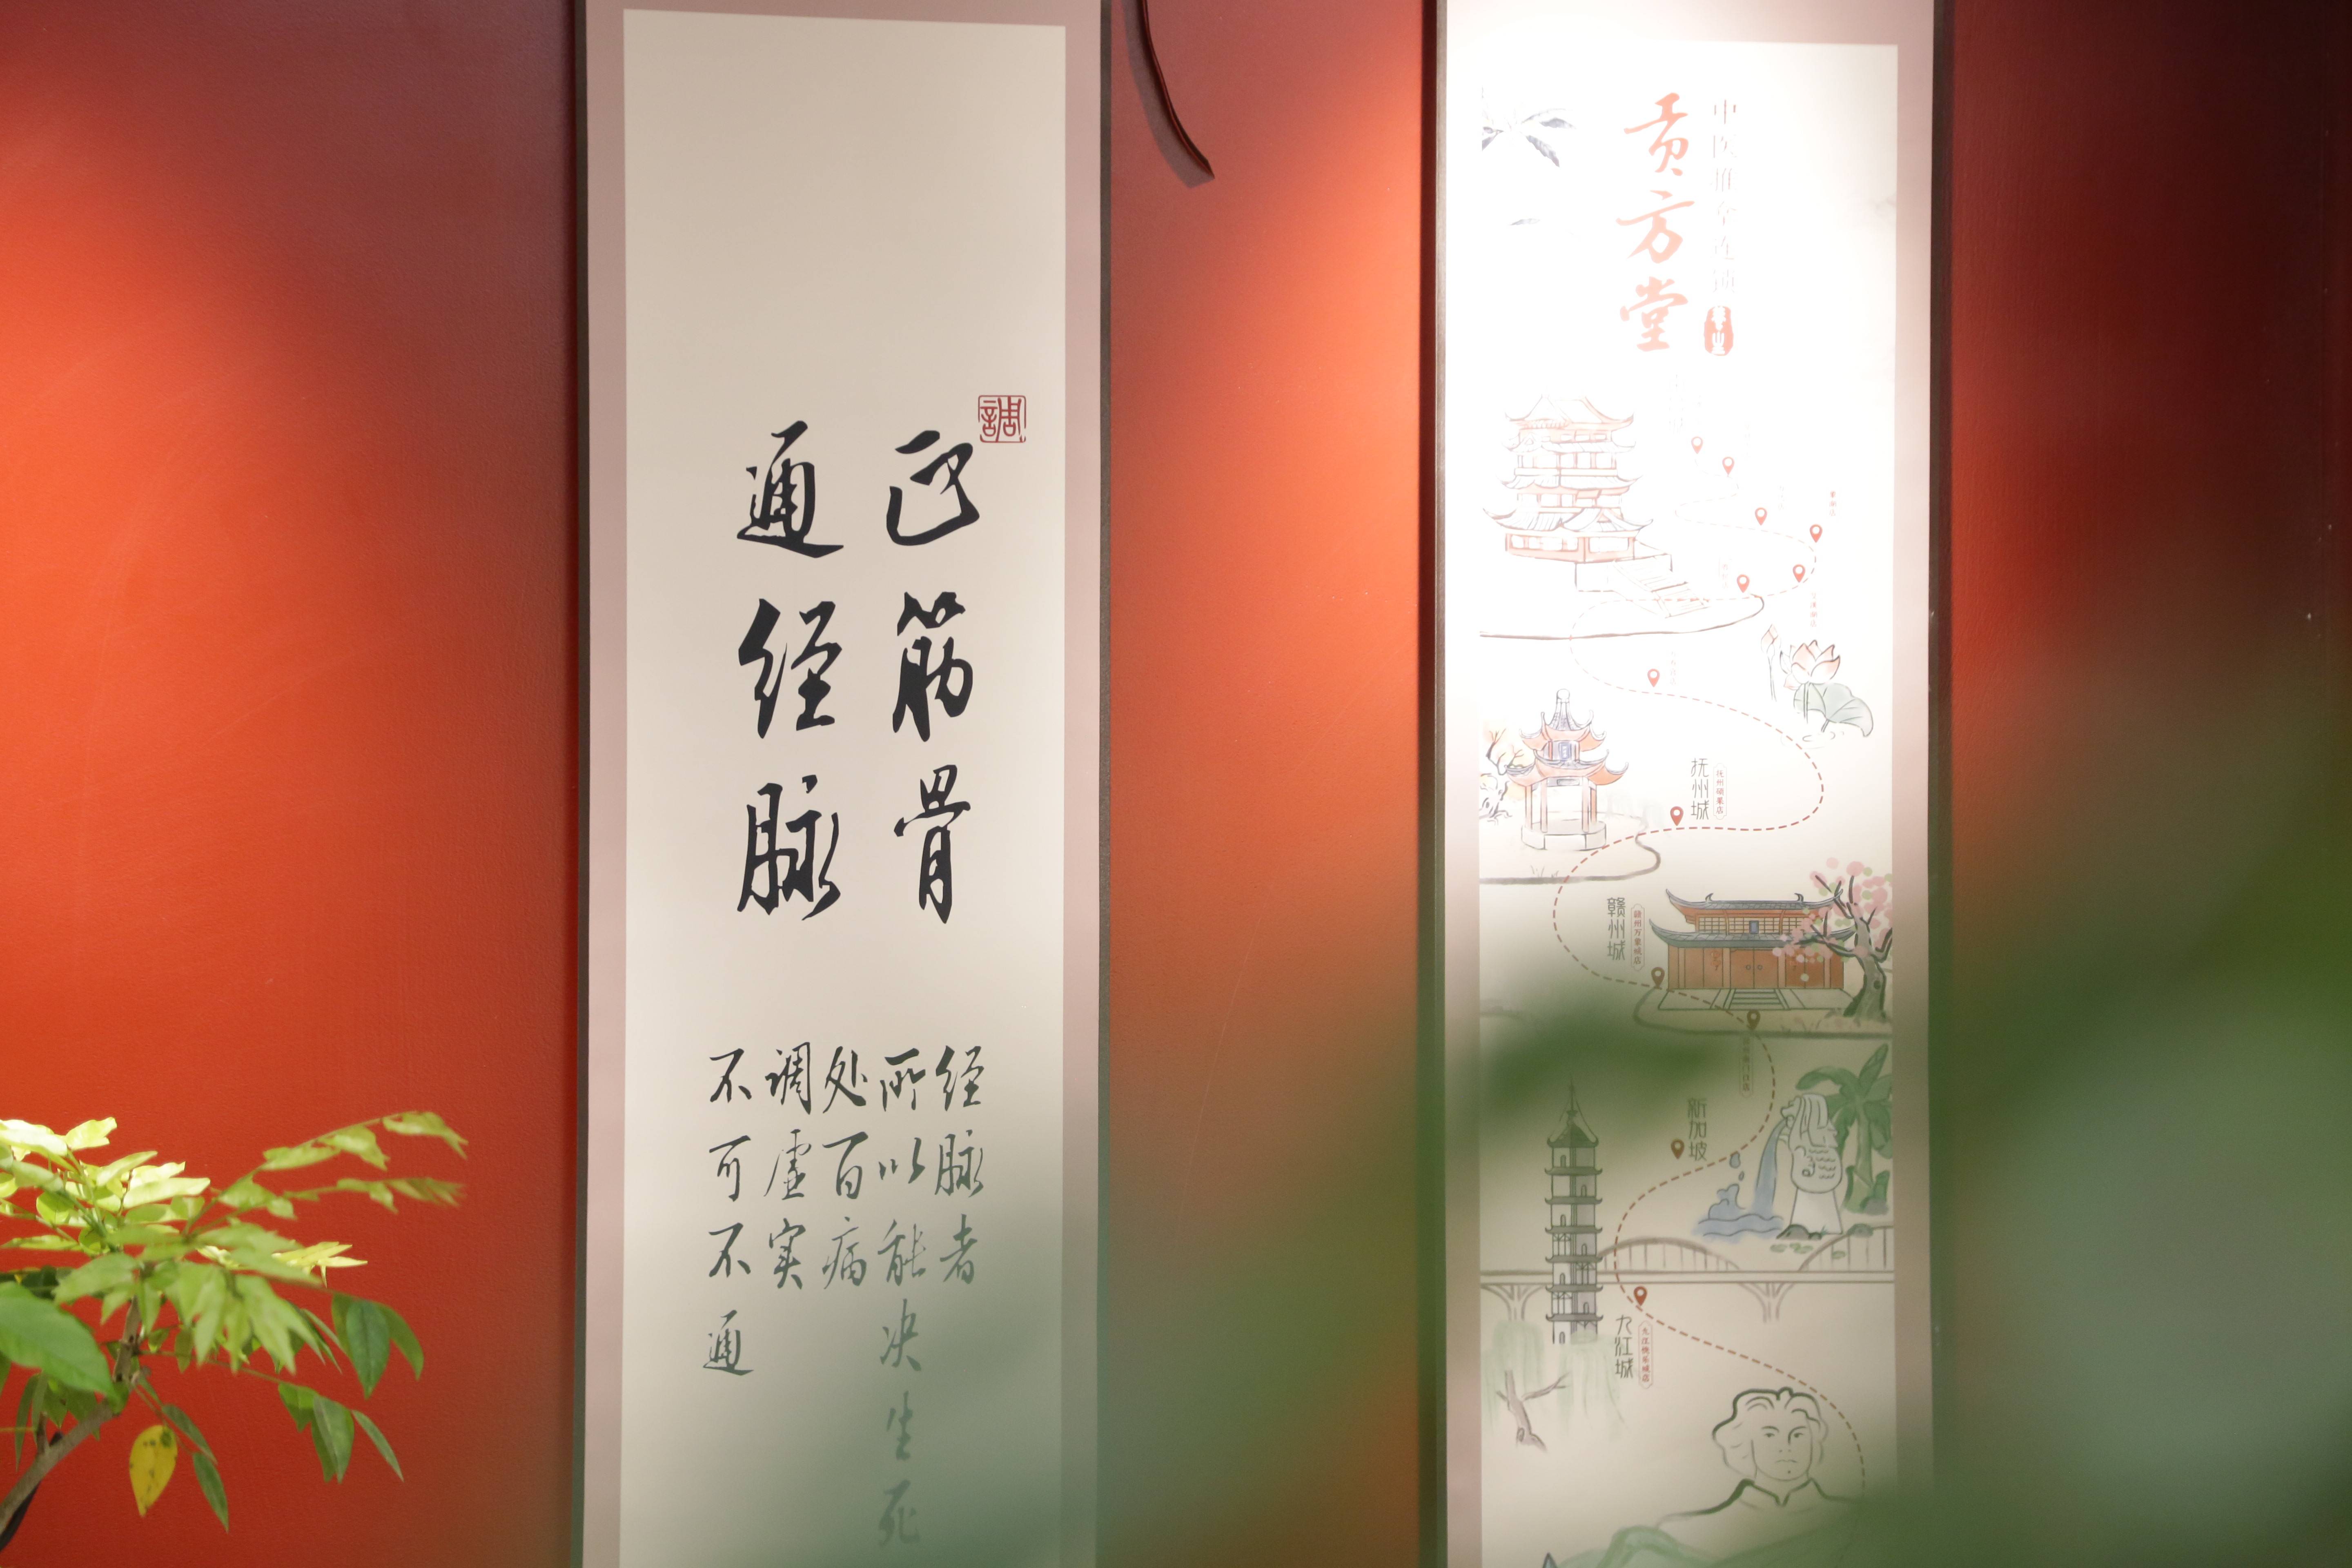 調
正筋骨
通经脉
经脉者
所以能决生死
处百病
调虚实
不可不通
中医推拿连锁
贡方堂
抚州城
赣州万象城店
赣州城
新加坡
九江城